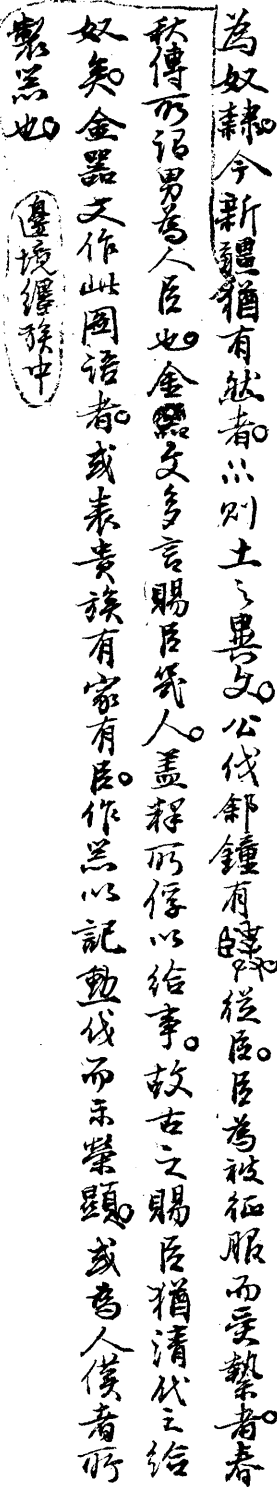 為奴隸。今新疆猶有然者。八則土之異文。公伐郐鐘有 從臣。臣為被征服而受縶者。春
秋傳所謂男為人臣也。金器文多言賜臣幾人。蓋釋所俘以給事。故古之賜臣猶清代之給
奴矣。金器文作此圖語者。或表貴族有家有臣。作器以記勳伐而示榮顯。或為人僕者所
製器也。
邊境纏族中